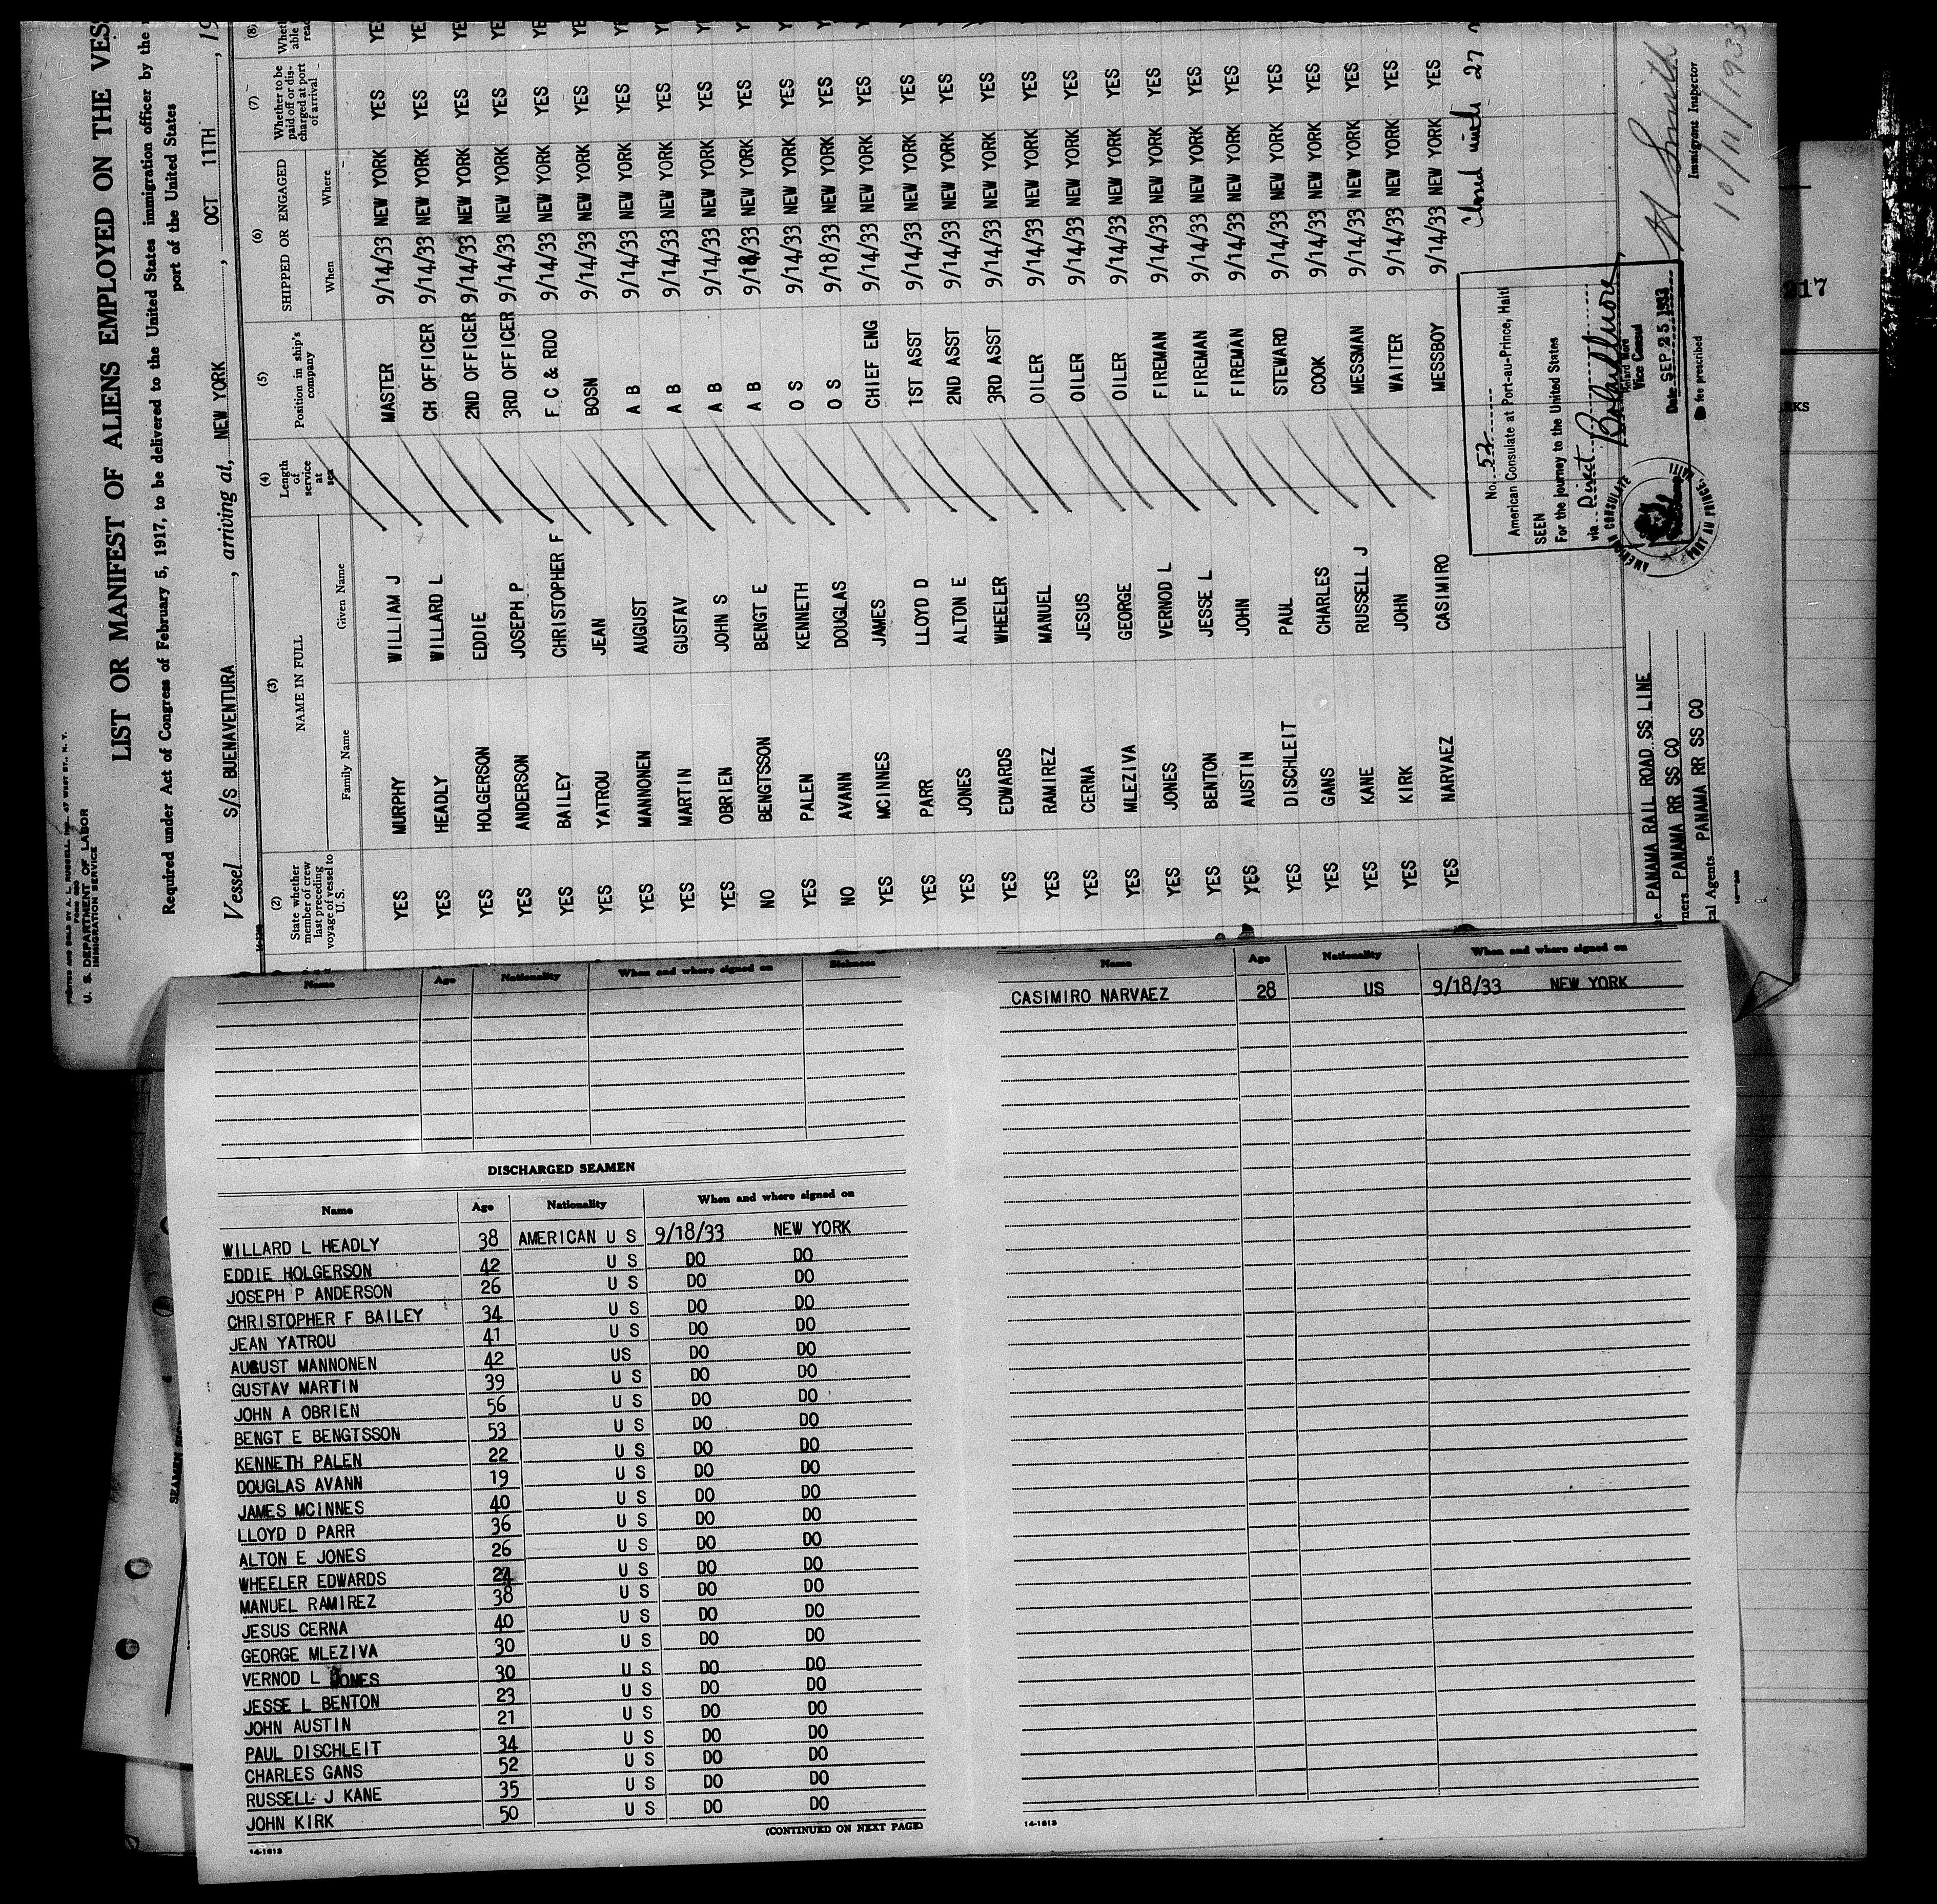 PRINTED AND SOLD BY A. L. RUSSELL, INC. 47 WEST ST., N. Y.
FORM 680
U. S. DEPARTMENT OF LABOR
IMMIGRATION SERVICE
LIST OR MANIFEST OF ALIENS EMPLOYED ON THE VES
Required under Act of Congress of February 5, 1917, to be delivered to the United States immigration officer by the
port of the United States
Vessel S/S BUENAVENTURA , arriving at, NEW YORK , OCT 11TH , 19
(2) State whether member of crew last preceding voyage of vessel to U. S. (3) NAME IN FULL Family Name Given Name (4) Length of service at sea (5) Position in ship's company (6) SHIPPED OR ENGAGED When Where (7) Whether to be paid off or discharged at port of arrival (8)
YES MURPHY WILLIAM J MASTER 9/14/33 NEW YORK YES YE
YES HEADLY WILLARD L CH OFFICER 9/14/33 NEW YORK YES YE
YES HOLGERSON EDDIE 2ND OFFICER 9/14/33 NEW YORK YES YE
YES ANDERSON JOSEPH P 3RD OFFICER 9/14/33 NEW YORK YES YE
YES BAILEY CHRISTOPHER F F C & RDO 9/14/33 NEW YORK YES YE
YES YATROU JEAN BOSN 9/14/33 NEW YORK YES YE
YES MANNONEN AUGUST A B 9/14/33 NEW YORK YES YE
YES MARTIN GUSTAV A B 9/14/33 NEW YORK YES Y
YES OBRIEN JOHN S A B 9/14/33 NEW YORK YES Y
NO BENGTSSON BENGT E A B 9/18/33 NEW YORK YES Y
YES PALEN KENNETH O S 9/14/33 NEW YORK YES Y
NO AVANN DOUGLAS O S 9/18/33 NEW YORK YES Y
YES MCINNES JAMES CHIEF ENG 9/14/33 NEW YORK YES Y
YES PARR LLOYD D 1ST ASST 9/14/33 NEW YORK YES
YES JONES ALTON E 2ND ASST 9/14/33 NEW YORK YES
YES EDWARDS WHEELER 3RD ASST 9/14/33 NEW YORK YES
YES RAMIREZ MANUEL OILER 9/14/33 NEW YORK YES
YES CERNA JESUS OILER 9/14/33 NEW YORK YES
YES MLEZIVA GEORGE OILER 9/14/33 NEW YORK YES
YES JONES VERNOD L FIREMAN 9/14/33 NEW YORK YES
YES BENTON JESSE L FIREMAN 9/14/33 NEW YORK YES
YES AUSTIN JOHN FIREMAN 9/14/33 NEW YORK YES
YES DISCHLEIT PAUL STEWARD 9/14/33 NEW YORK YES
YES GANS CHARLES COOK 9/14/33 NEW YORK YES
YES KANE RUSSELL J MESSMAN 9/14/33 NEW YORK YES
YES KIRK JOHN WAITER 9/14/33 NEW YORK YES
YES NARVAEZ CASIMIRO MESSBOY 9/14/33 NEW YORK YES
Closed with 27
No. 52
American Consulate at Port-au-Prince, Haiti
SEEN
For the journey to the United States
via Direct
Vice Consul
Date SEP 25 1933
fee prescribed
AMERICAN CONSULATE
PORT AU PRINCE, HAITI
Smith
Immigrant Inspector
10/11/1933
PANAMA RAIL ROAD SS LINE
ners PANAMA RR SS CO
cal Agents PANAMA RR SS CO
217
RKS
Name Age Nationality When and where signed on Sickness
DISCHARGED SEAMEN
Name Age Nationality When and where signed on
WILLARD L HEADLY 38 AMERICAN U S 9/18/33 NEW YORK
EDDIE HOLGERSON 42 U S DO DO
JOSEPH P ANDERSON 26 U S DO DO
CHRISTOPHER F BAILEY 34 U S DO DO
JEAN YATROU 41 U S DO DO
AUGUST MANNONEN 42 US DO DO
GUSTAV MARTIN 39 U S DO DO
JOHN A OBRIEN 56 U S DO DO
BENGT E BENGTSSON 53 U S DO DO
KENNETH PALEN 22 U S DO DO
DOUGLAS AVANN 19 U S DO DO
JAMES MCINNES 40 U S DO DO
LLOYD D PARR 36 U S DO DO
ALTON E JONES 26 U S DO DO
WHEELER EDWARDS 24 U S DO DO
MANUEL RAMIREZ 38 U S DO DO
JESUS CERNA 40 U S DO DO
GEORGE MLEZIVA 30 U S DO DO
VERNOD L JONES 30 U S DO DO
JESSE L BENTON 23 U S DO DO
JOHN AUSTIN 21 U S DO DO
PAUL DISCHLEIT 34 U S DO DO
CHARLES GANS 52 U S DO DO
RUSSELL J KANE 35 U S DO DO
JOHN KIRK 50 U S DO DO
(CONTINUED ON NEXT PAGE)
14-1613
Name Age Nationality When and where signed on
CASIMIRO NARVAEZ 28 US 9/18/33 NEW YORK
14-1613